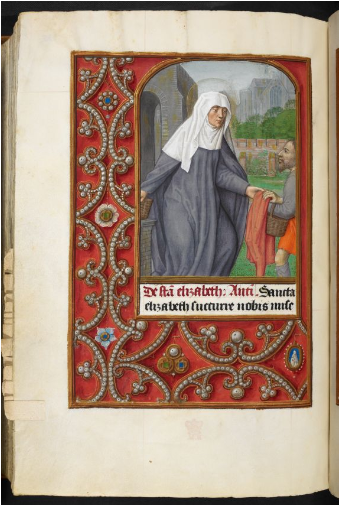 De stā elizabeth: Anti. Sancta
elizabeth succurre nobis mise